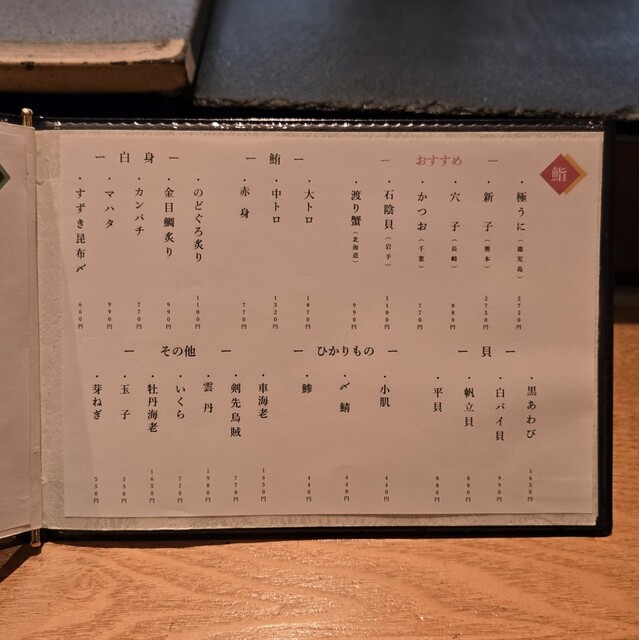 鮨
おすすめ
・極うに（鹿児島） 2750円
・新子（熊本） 2750円
・穴子（長崎） 880円
・かつお（千葉） 770円
・石陰貝（岩手） 1100円
・渡り蟹（北海道） 990円
鮪
・大トロ 1870円
・中トロ 1320円
・赤身 770円
白身
・のどぐろ炙り 1100円
・金目鯛炙り 990円
・カンパチ 770円
・マハタ 990円
・すずき昆布〆 660円
貝
・黒あわび 1650円
・白バイ貝 990円
・帆立貝 880円
・平貝 880円
ひかりもの
・小肌 440円
・〆鯖 440円
・鯵 440円
その他
・車海老 1650円
・剣先烏賊 770円
・雲丹 1980円
・いくら 770円
・牡丹海老 1650円
・玉子 330円
・芽ねぎ 550円